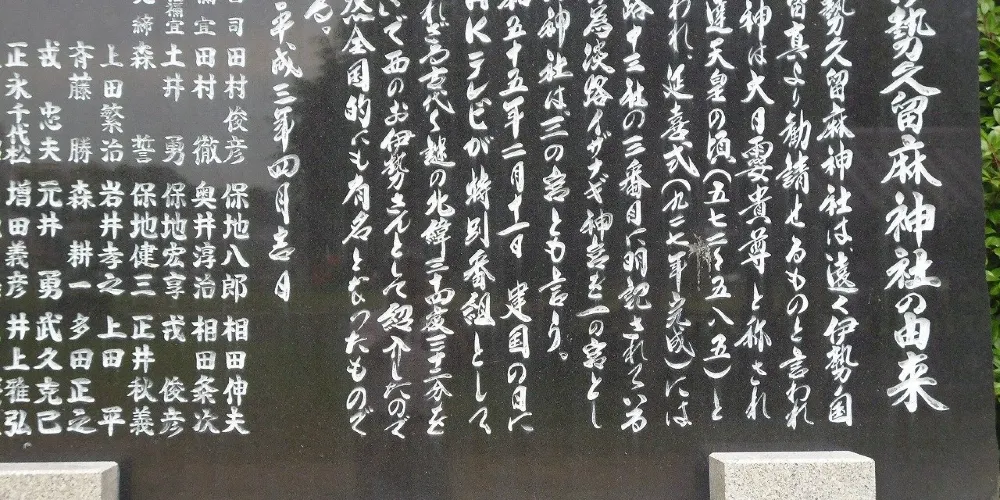 勢久留麻神社の由来
勢久留麻神社は遠く伊勢の国
留真より勧請せるものと言われ
神は大日孁貴尊と称され
達天皇の頃(五七二〜五八五)と
われ、延喜式(九二七年完成)には
路十三社の三番目に明記されている
為淡路イザナギ神宮を一の宮とし
神社は二の宮とも言う。
五十五年二月十一日建国の日に
HKテレビが特別番組として
古代を越の北緯三十四度三十二分を
いで西のお伊勢さんとして紹介したので
然全国的にも有名となったもので
る。
平成三年四月吉日
司 田村俊彦 保地八郎 相田伸夫
田村徹 奥井淳治 相田粂次
禰宜 土井勇 保地宏享 戎俊彦
締 森誓 保地健三 正井秋義
上田繁治 岩井孝之 上田平
斉藤勝 森耕一 多田正之
戎忠夫 元井勇 武久克己
正永千代松 増田義彦 井上雅弘